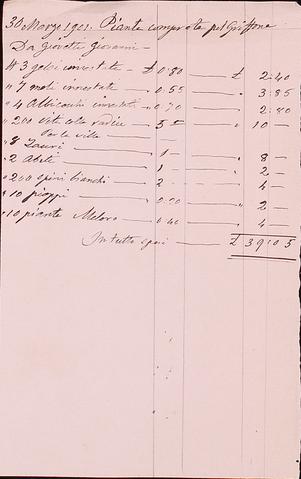 30 Marzo 1901. Piante comprate pel Griffone
Da Giovetti Giovanni -
N 3 gelsi innestate - £ 0:80 - £ 2:40
" 7 meli innestate - " 0:55 - " 3:85
" 4 Albicocchi innestati - " 0:70 - " 2:80
" 200 viti - 5 - " 10 -
Per le ville -
" 8 Lauri - 1 - " 8 -
" 2 Abeti - 1 - " 2 -
" 200 spini bianchi - 2 - " 4 -
" 10 pioppi - 0:20 - " 2 -
" 10 piante - 0:40 - " 4 -
In tutto - £ 39:05